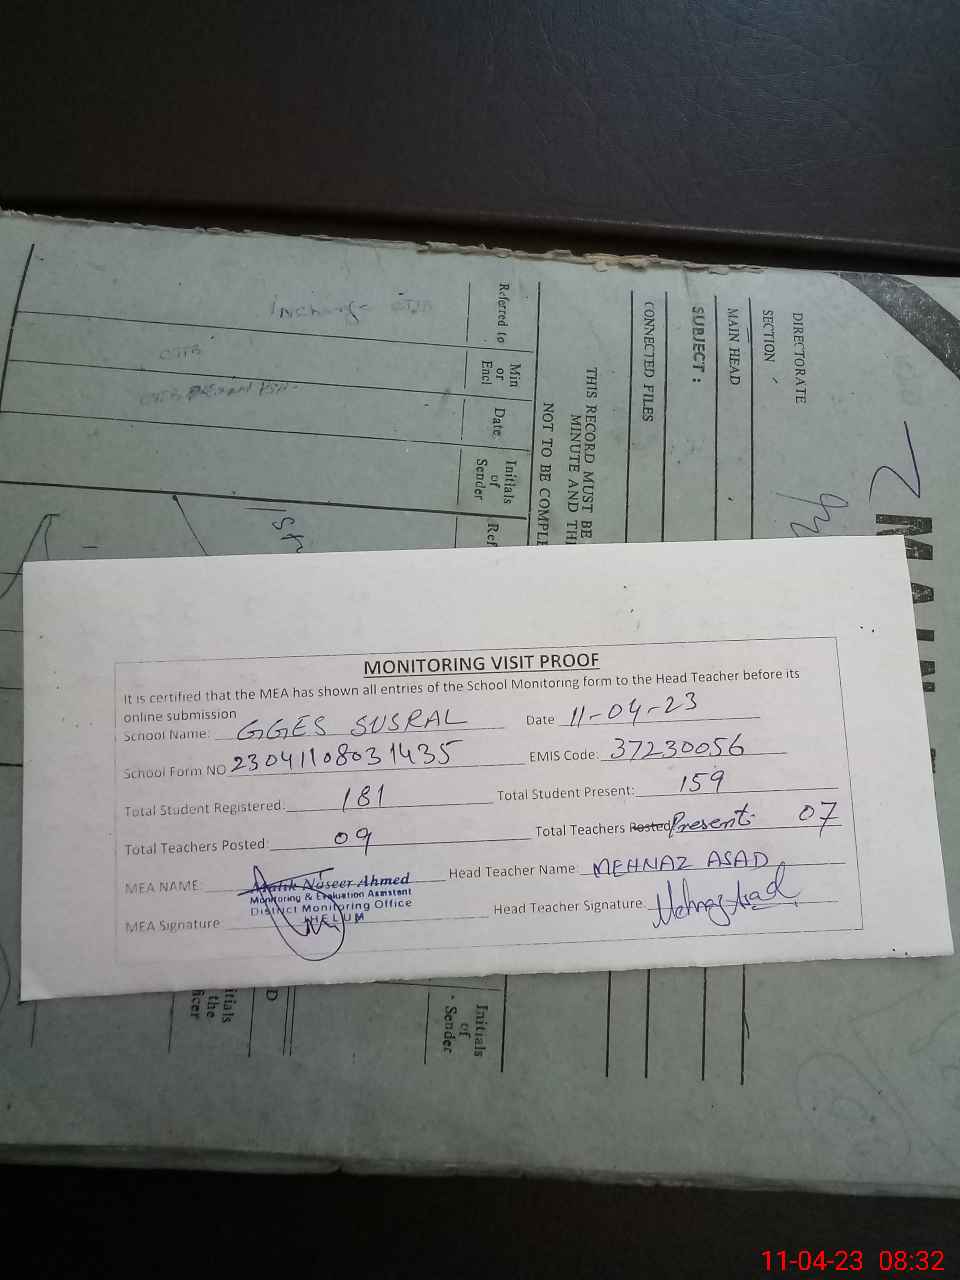 DIRECTORATE
SECTION
MAIN HEAD
SUBJECT :
CONNECTED FILES
THIS RECORD MUST BE
MINUTE AND
NOT TO BE
Referred to
Min or Encl
Date
Initials of Sender
Ref
Incharge
1st
MONITORING VISIT PROOF
It is certified that the MEA has shown all entries of the School Monitoring form to the Head Teacher before its
online submission
School Name: GGES SUSRAL Date 11-04-23
School Form NO 23041108031435 EMIS Code: 37230056
Total Student Registered: 181 Total Student Present: 159
Total Teachers Posted: 09 Total Teachers Posted Present: 07
MEA NAME: Malik Naseer Ahmed Head Teacher Name: MEHNAZ ASAD
Monitoring & Evaluation Assistent
District Monitoring Office
JHELUM
MEA Signature Head Teacher Signature: Mehnaz Asad
Initials of Sender
the
11-04-23 08:32